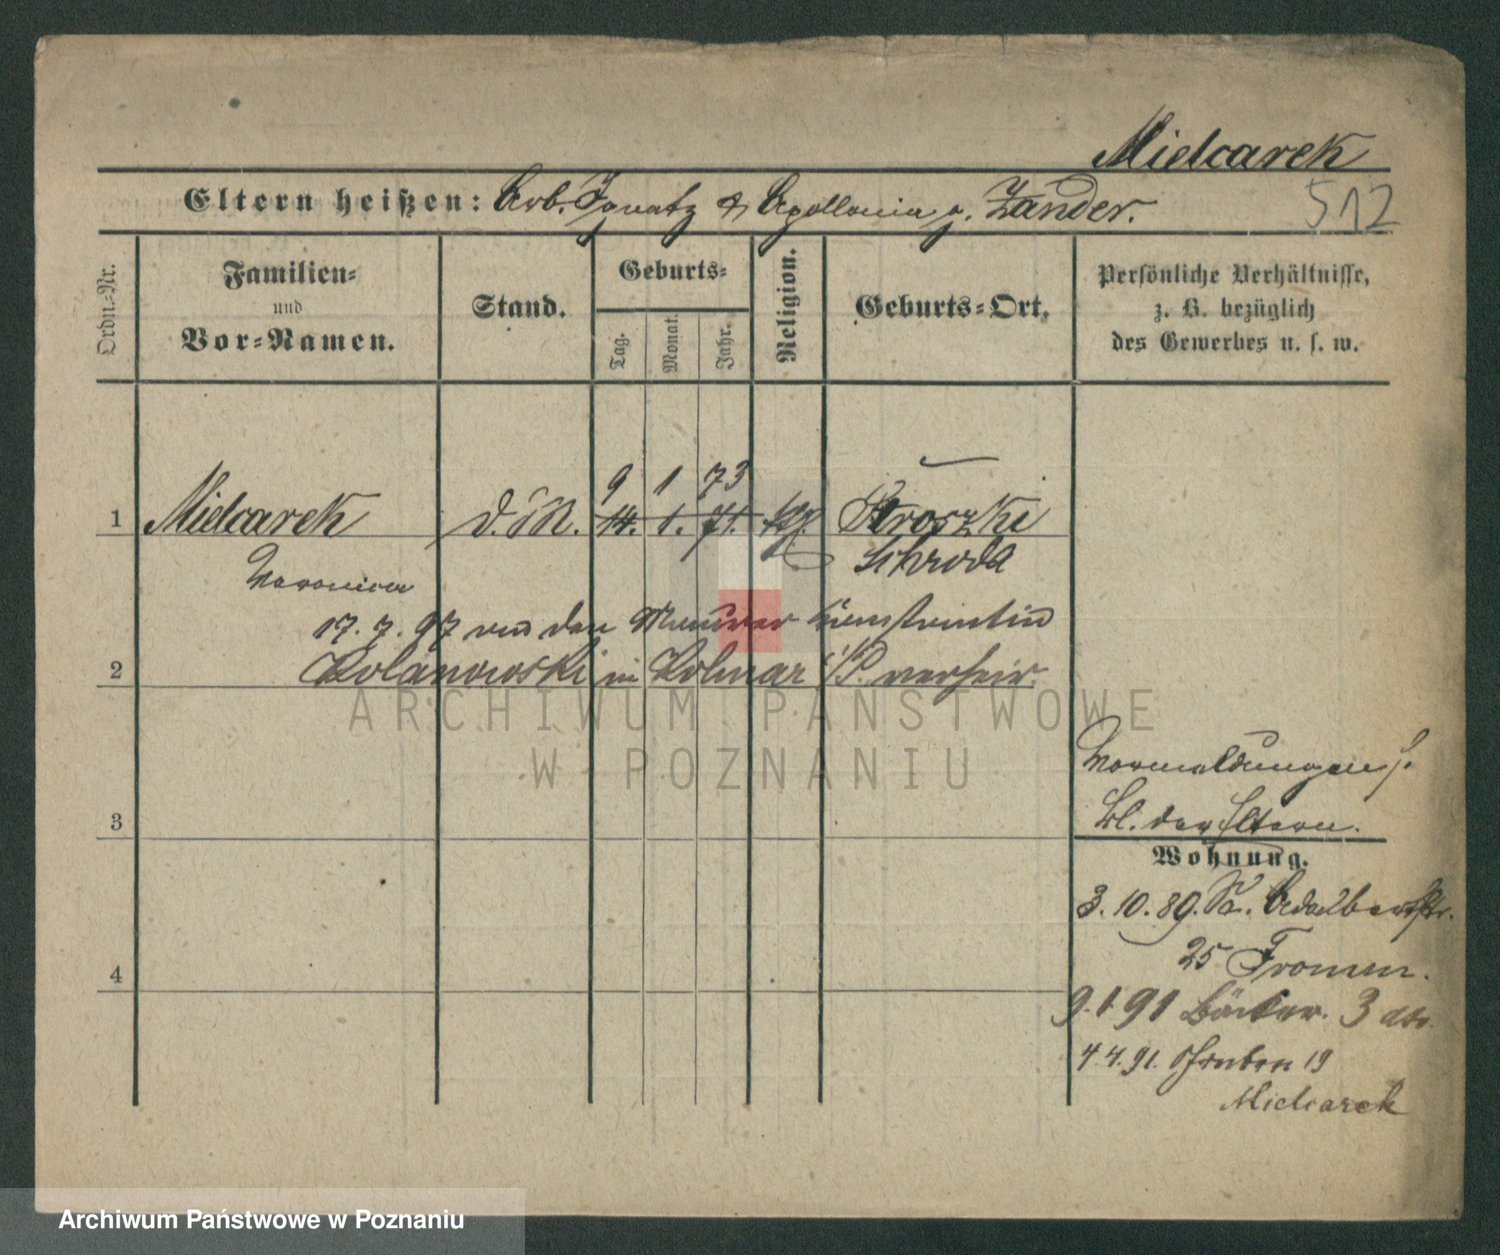 Mielcarek
Eltern heißen: Arb. Ignatz & Apollonia g. Zander.
512
Ordn.-Nr.
Familien- und Vor-Namen.
Stand.
Geburts-
Tag.
Monat.
Jahr.
Religion.
Geburts-Ort.
Persönliche Verhältnisse,
z. B. bezüglich
des Gewerbes u. s. w.
9 1 73
1 Mielcarek d. M. 14. 1. 71. kth. Kroszki
Veronica Schroda
17. 7. 97 mit dem Maurer Constantin
2 Rolanowski in Kolmar i/P. verheir.
ARCHIWUM PAŃSTWOWE
W POZNANIU
Vormeldungen s.
3 Bl. der Eltern.
Wohnung.
3. 10. 89. St. Adalbertstr.
25 Fromm.
4
9. 1. 91 Bäcker. 3
4. 4. 91. Gruben 19
Mielcarek
Archiwum Państwowe w Poznaniu